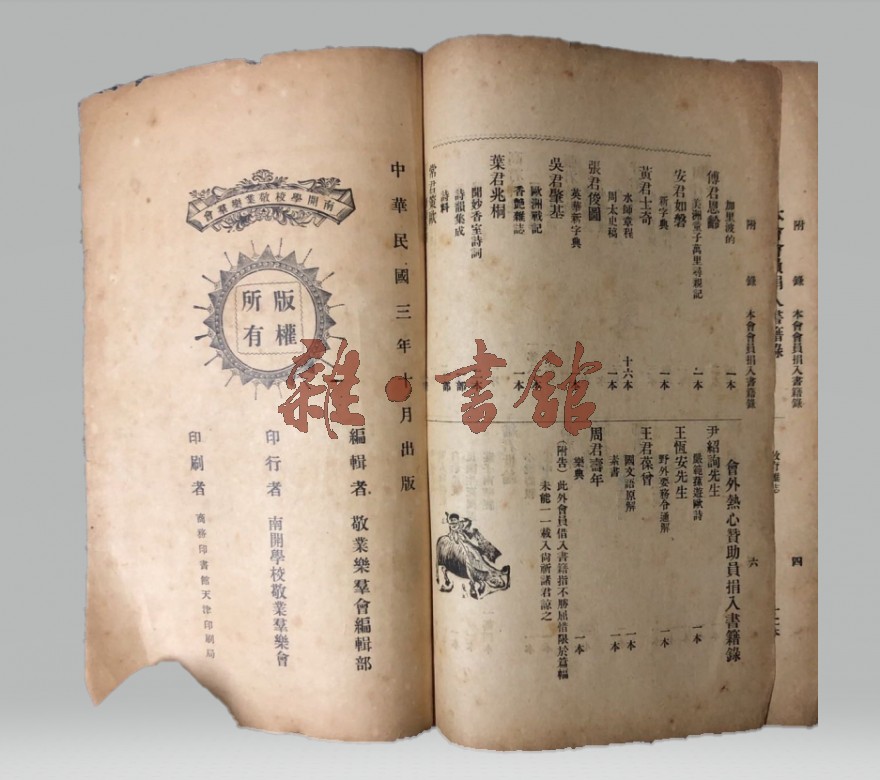 附錄 本會會員捐入書籍錄 四
附錄 本會會員捐入書籍錄 六
加里波的 一本
傅君恩齡
美洲童子萬里尋親記 一本
安君如磐
新字典 一本
黃君士奇
水師章程 十六本
周太史稿 一本
張君俊圖
英華新字典 一本
吳君肇基
歐洲戰記 一本
香艷雜誌 一本
葉君兆桐
聞妙香室詩詞 本
詩韻集成 部
詩料 部
會外熱心贊助員捐入書籍錄
尹紹詢先生
嚴範蓀遊歐詩 一本
王恆安先生
野外要務令通解 一本
王君葆曾
國文語原解 一本
素書 一本
周君壽年
樂典 一本
(附告)此外會員借入書籍指不勝屈惜限於篇幅
未能一一載入尚祈諸君諒之
中華民國三年十月出版
南開學校敬業樂羣會
版權
所有
編輯者 敬業樂羣會編輯部
印行者 南開學校敬業羣樂會
印刷者 商務印書館天津印刷局
雜·書館